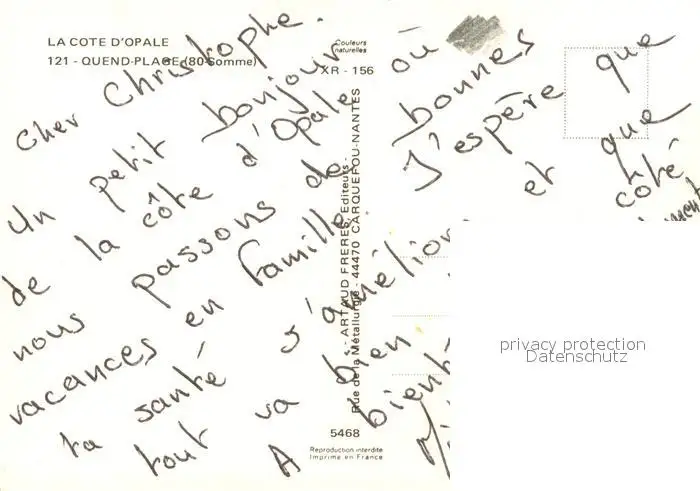 LA COTE D'OPALE
121 - QUEND-PLAGE (80-Somme)
Couleurs
naturelles
XR - 156
Cher Christophe.
Un petit bonjour
de la côte d'Opale où
nous passons de bonnes
vacances en famille. J'espère que
ta santé s'amélior et que
tout va bien côté
A bient
- ARTAUD FRERES, Editeurs -
Rue de la Métallurgie - 44470 CARQUEFOU-NANTES
5468
Reproduction interdite
Imprimé en France
privacy protection
Datenschutz